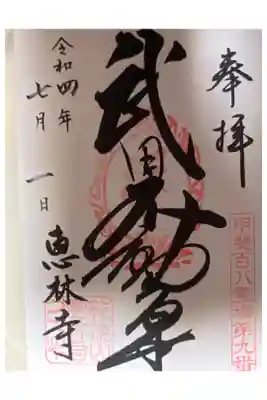 奉拝
甲斐百八霊場第九番
武田不動尊
令和四年
七月一日
恵林寺